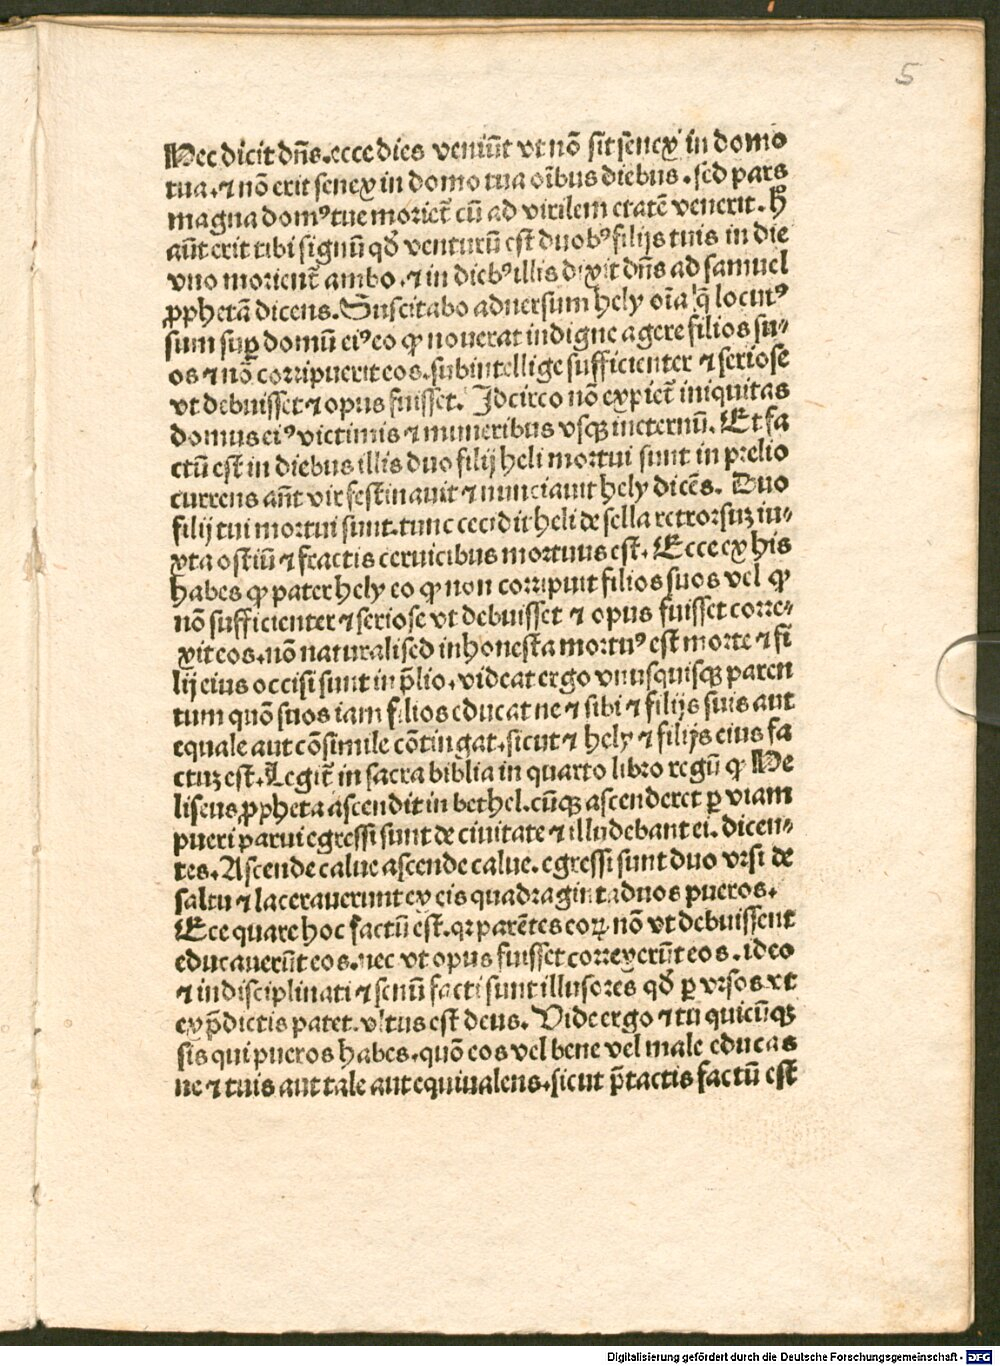 5
Hec dicit dn̄s. ecce dies veniūt vt nō sit senex in domo
tua. ⁊ nō erit senex in domo tua oībus diebus. sed pars
magna domꝰ tue moriet̄ cū ad virilem etatē venerit. h̄
aūt erit tibi signū qđ venturū est duobꝰ filijs tuis in die
vno morient̄ ambo. ⁊ in diebꝰ illis dixit dn̄s ad samuel
ꝓphetā dicens. Suscitabo aduersum hely oīa q̄ locutꝰ
sum suꝑ domū eiꝰ eo ꝙ nouerat indigne agere filios su⸗
os ⁊ nō corripuerit eos. subintellige sufficienter ⁊ seriose
vt debuisset ⁊ opus fuisset. Idcirco nō expiet̄ iniquitas
domus eiꝰ victimis ⁊ muneribus vsqꝫ ineternū. Et fa
ctū est in diebus illis duo filij heli mortui sunt in prelio
currens aūt vir festinauit ⁊ nunciauit hely dicēs. Duo
filij tui mortui sunt. tunc cecidit heli de sella retrorsuꝫ iu⸗
xta ostiū ⁊ fractis ceruicibus mortuus est. Ecce ex his
habes ꝙ pater hely eo ꝙ non corripuit filios suos vel ꝙ
nō sufficienter ⁊ seriose vt debuisset ⁊ opus fuisset corre⸗
xit eos. nō naturali sed inhonesta mortuꝰ est morte ⁊ fi
lij eius occisi sunt in p̄lio. videat ergo vnusquisqꝫ paren
tum quō suos iam filios educat ne ⁊ sibi ⁊ filijs suis aut
equale aut cōsimile cōtingat. sicut ⁊ hely ⁊ filijs eius fa
ctuꝫ est. Legit̄ in sacra biblia in quarto libro regū ꝙ He
liseus ꝓpheta ascendit in bethel. cūqꝫ ascenderet ꝑ viam
pueri parui egressi sunt de ciuitate ⁊ illudebant ei. dicen⸗
tes. Ascende calue ascende calue. egressi sunt duo vrsi de
saltu ⁊ lacerauerunt ex eis quadraginta duos pueros.
Ecce quare hoc factū est. qꝛ parētes eoꝝ nō vt debuissent
educauerūt eos. nec vt opus fuisset correxerūt eos. ideo
⁊ indisciplinati ⁊ senū facti sunt illusores qđ ꝑ vrsos vt
ex p̄dictis patet. vltus est deus. Vide ergo ⁊ tu quicūqꝫ
sis qui pueros habes. quō eos vel bene vel male educas
ne ⁊ tuis aut tale aut equiualens. sicut p̄tactis factū est
Digitalisierung gefördert durch die Deutsche Forschungsgemeinschaft - DFG